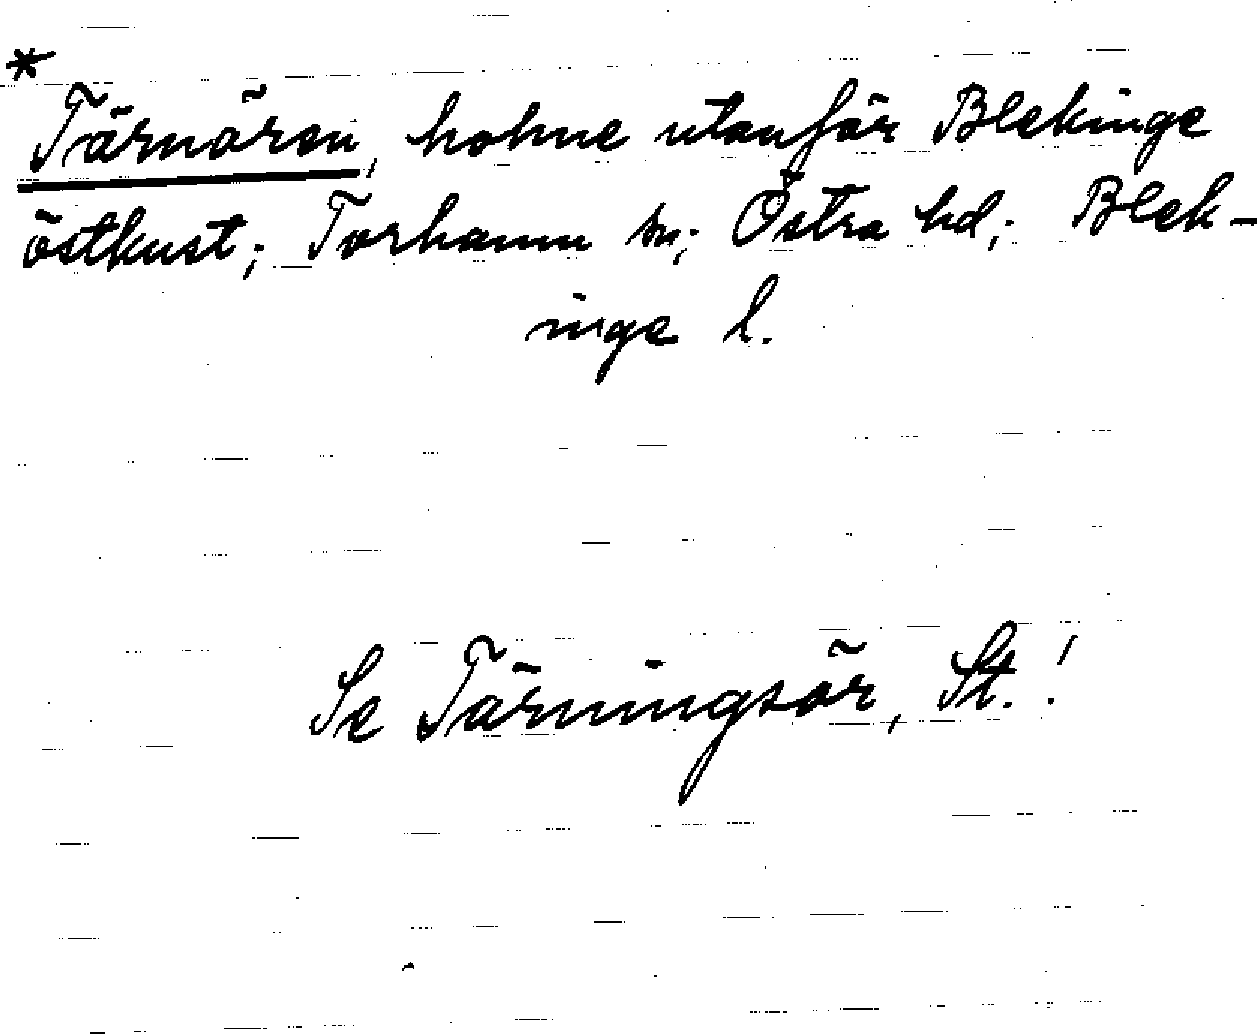 * Tärnören, holme utanför Blekinge
östkust; Torhamn sn; Östra hd; Blek-
inge l.
Se Tärningsör, St.!